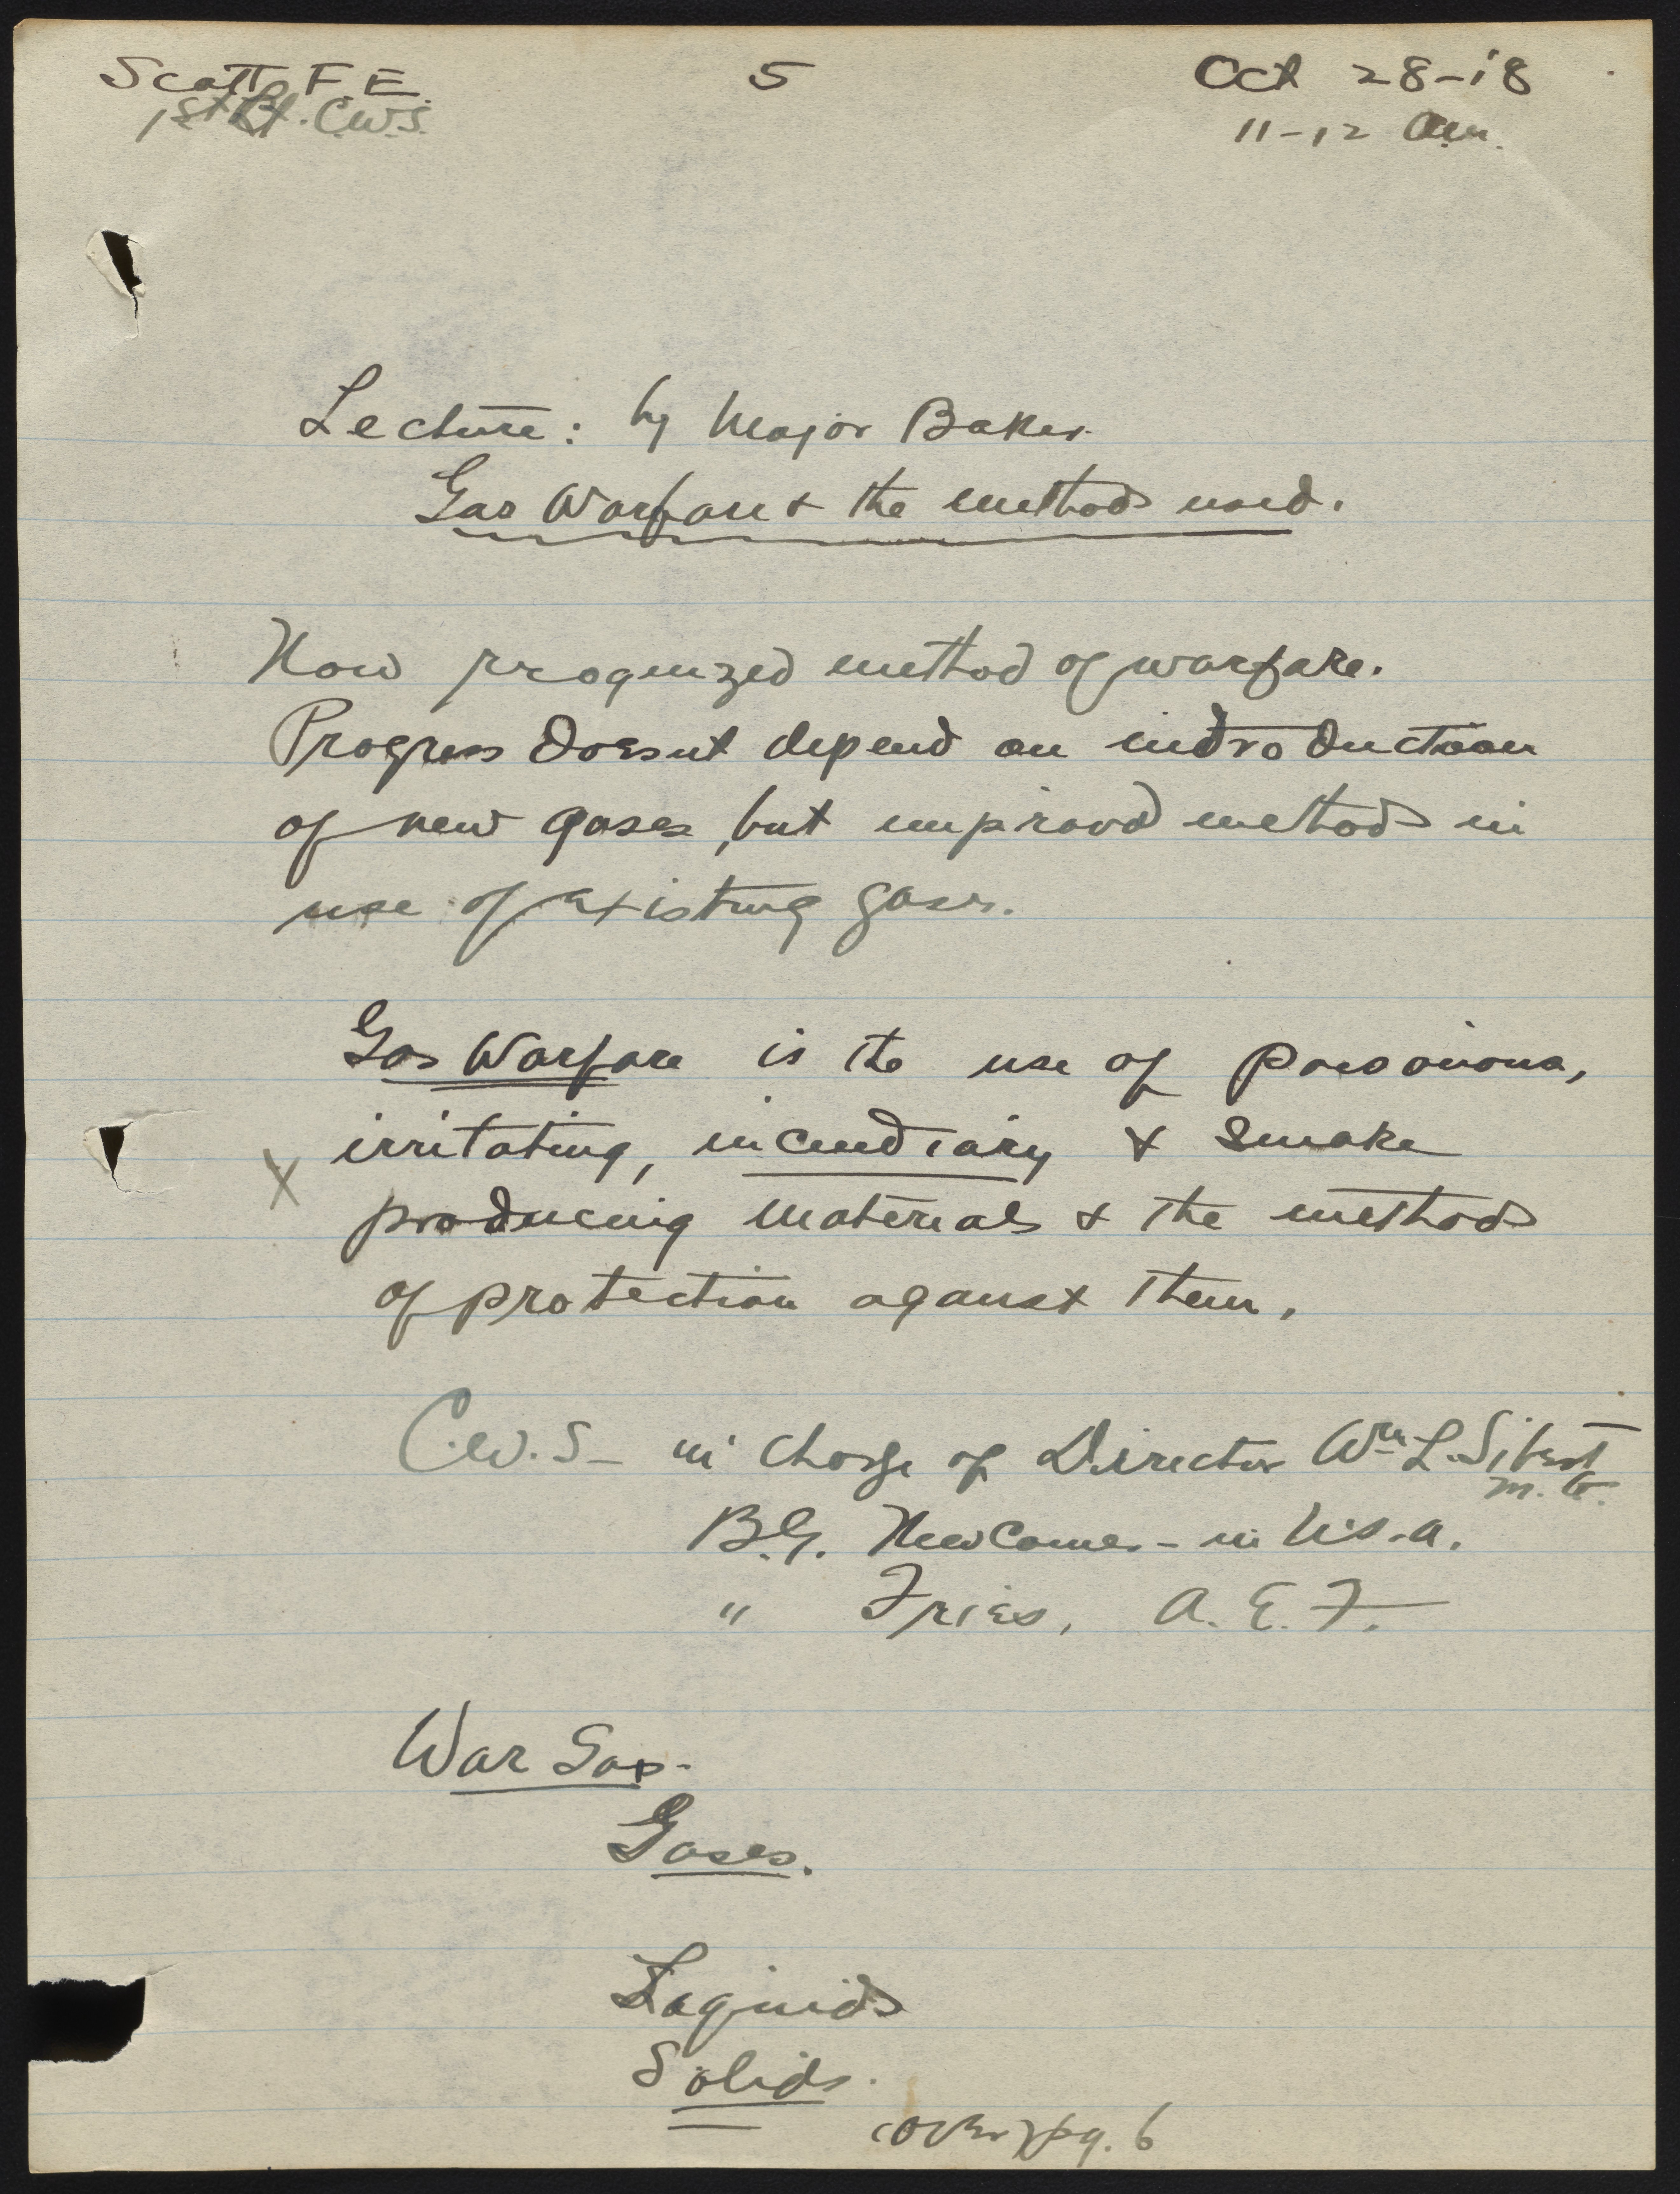 Scott F. E. 5 Oct 28-18
1st Lt. C.W.S. 11-12 Am.
Lecture: by Major Baker
Gas Warfare & the methods used.
Now recognized method of warfare.
Progress doesnt depend on introduction
of new gases, but improved methods in
use of existing gases.
Gas Warfare is the use of poisonous,
X irritating, incendiary & smoke
producing materials & the methods
of protection against them.
C.W.S- in charge of Director Wm L. Sibert
M.G.
B.G. Newcomer - in U.S.A.
" Fries, A. E. F.
War Gas-
Gases.
Liquids
Solids.
(over) pg. 6